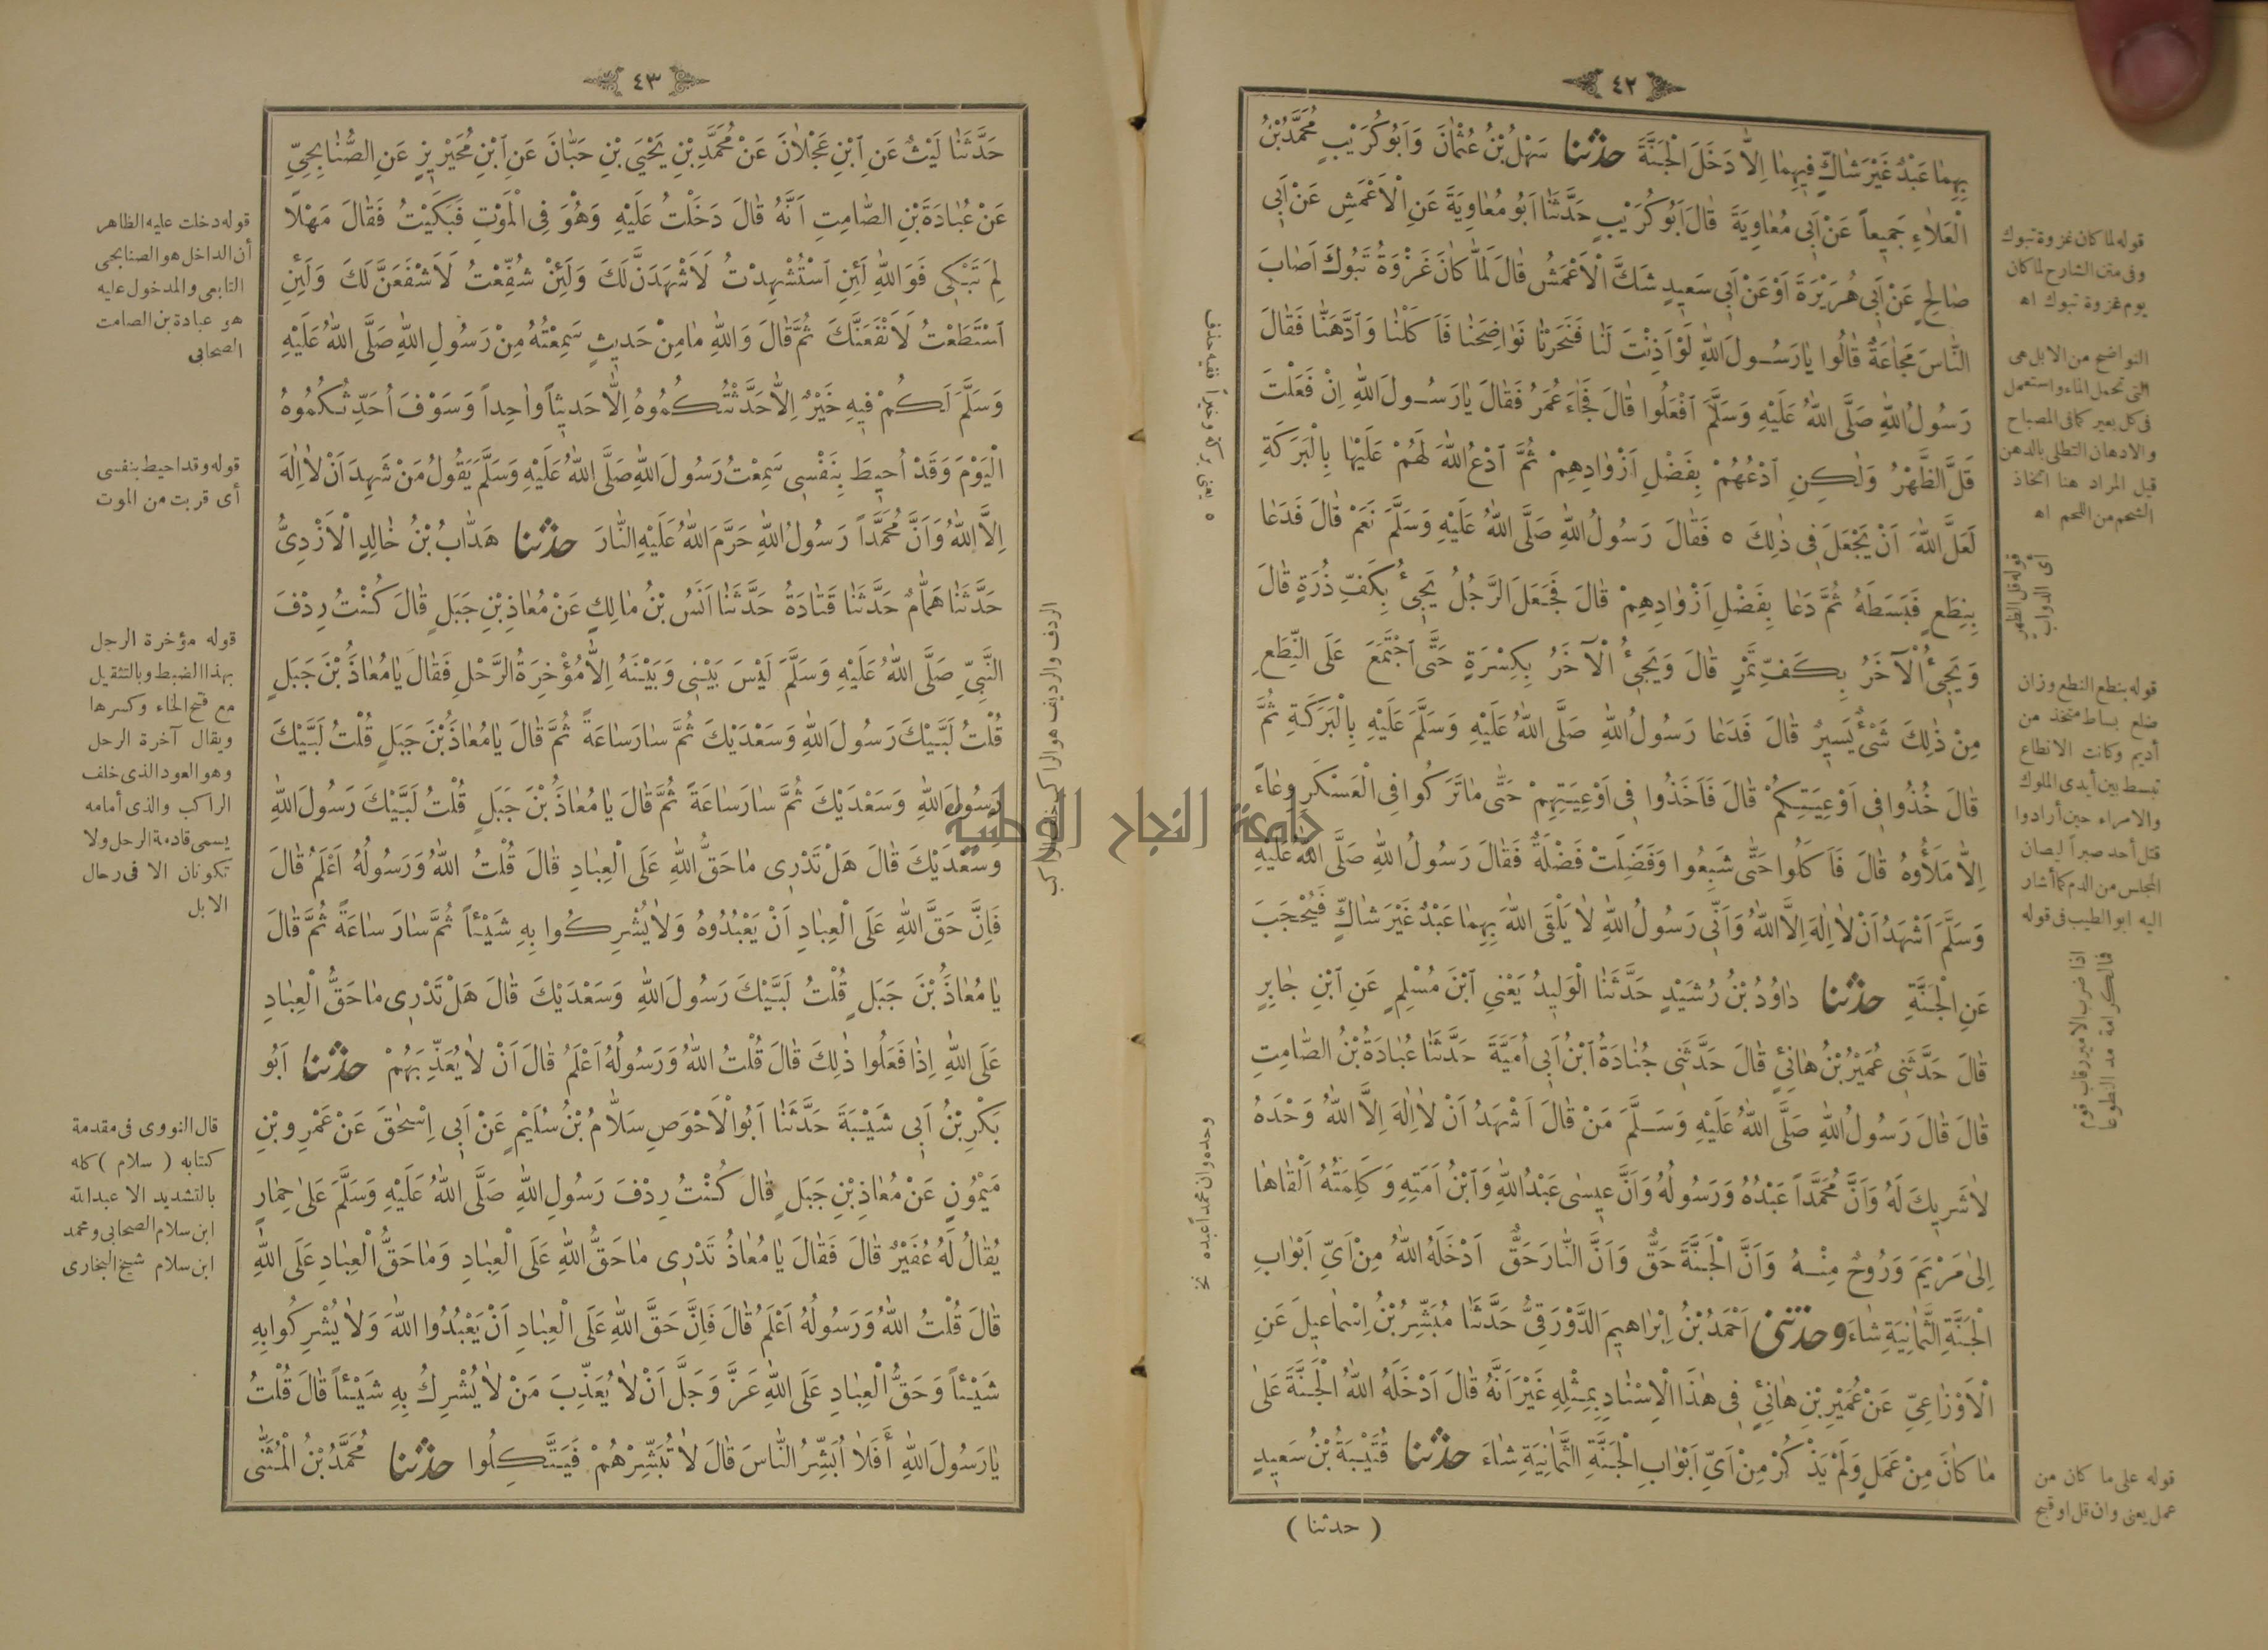 ٤٢
بِهِمَا عَبْدٌ غَيْرَ شَاكٍّ فِيهِمَا اِلَّا دَخَلَ الْجَنَّةَ حدثنا سَهْلُ بْنُ عُثْمَانَ وَاَبُو كُرَيْبٍ مُحَمَّدُ بْنُ
الْعَلَاءِ جَمِيعاً عَنْ اَبِى مُعَاوِيَةَ قَالَ اَبُو كُرَيْبٍ حَدَّثَنَا اَبُو مُعَاوِيَةَ عَنِ الْاَعْمَشِ عَنْ اَبِى
صَالِحٍ عَنْ اَبِى هُرَيْرَةَ اَوْ عَنْ اَبِى سَعِيدٍ شَكَّ الْاَعْمَشُ قَالَ لَمَّا كَانَ غَزْوَةُ تَبُوكَ اَصَابَ
النَّاسَ مَجَاعَةٌ قَالُوا يَا رَسُولَ اللّٰهِ لَوْ اَذِنْتَ لَنَا فَنَحَرْنَا نَوَاضِحَنَا فَاَكَلْنَا وَادَّهَنَّا فَقَالَ
رَسُولُ اللّٰهِ صَلَّى اللّٰهُ عَلَيْهِ وَسَلَّمَ اَفْعَلُوا قَالَ فَجَاءَ عُمَرُ فَقَالَ يَا رَسُولَ اللّٰهِ اِنْ فَعَلْتَ
قَلَّ الظَّهْرُ وَلٰكِنِ اَدْعُهُمْ بِفَضْلِ اَزْوَادِهِمْ ثُمَّ اَدْعُ اللّٰهَ لَهُمْ عَلَيْهَا بِالْبَرَكَةِ
لَعَلَّ اللّٰهَ اَنْ يَجْعَلَ فِى ذٰلِكَ ٥ فَقَالَ رَسُولُ اللّٰهِ صَلَّى اللّٰهُ عَلَيْهِ وَسَلَّمَ نَعَمْ قَالَ فَدَعَا
بِنِطَعٍ فَبَسَطَهُ ثُمَّ دَعَا بِفَضْلِ اَزْوَادِهِمْ قَالَ فَجَعَلَ الرَّجُلُ يَجِىءُ بِكَفِّ ذُرَةٍ قَالَ
وَيَجِىءُ الْآخَرُ بِكَفِّ تَمْرٍ قَالَ وَيَجِىءُ الْآخَرُ بِكِسْرَةٍ حَتَّى اَجْتَمَعَ عَلَى النِّطَعِ
مِنْ ذٰلِكَ شَىْءٌ يَسِيرٌ قَالَ فَدَعَا رَسُولُ اللّٰهِ صَلَّى اللّٰهُ عَلَيْهِ وَسَلَّمَ عَلَيْهِ بِالْبَرَكَةِ ثُمَّ
قَالَ خُذُوا فِى اَوْعِيَتِكُمْ قَالَ فَاَخَذُوا فِى اَوْعِيَتِهِمْ حَتَّى مَا تَرَكُوا فِى الْعَسْكَرِ وِعَاءً
اِلَّا مَلَأُوهُ قَالَ فَاَكَلُوا حَتَّى شَبِعُوا وَفَضِلَتْ فَضْلَةٌ فَقَالَ رَسُولُ اللّٰهِ صَلَّى اللّٰهُ عَلَيْهِ
وَسَلَّمَ اَشْهَدُ اَنْ لَا اِلٰهَ اِلَّا اللّٰهُ وَاَنِّى رَسُولُ اللّٰهِ لَا يَلْقَى اللّٰهَ بِهِمَا عَبْدٌ غَيْرَ شَاكٍّ فَيُحْجَبَ
عَنِ الْجَنَّةِ حدثنا دَاوُدُ بْنُ رُشَيْدٍ حَدَّثَنَا الْوَلِيدُ يَعْنِى اَبْنَ مُسْلِمٍ عَنِ اَبْنِ جَابِرٍ
قَالَ حَدَّثَنِى عُمَيْرُ بْنُ هَانِئٍ قَالَ حَدَّثَنِى جُنَادَةُ اَبْنُ اَبِى اُمَيَّةَ حَدَّثَنَا عُبَادَةُ بْنُ الصَّامِتِ
قَالَ قَالَ رَسُولُ اللّٰهِ صَلَّى اللّٰهُ عَلَيْهِ وَسَلَّمَ مَنْ قَالَ اَشْهَدُ اَنْ لَا اِلٰهَ اِلَّا اللّٰهُ وَحْدَهُ
لَا شَرِيكَ لَهُ وَاَنَّ مُحَمَّداً عَبْدُهُ وَرَسُولُهُ وَاَنَّ عِيسٰى عَبْدُ اللّٰهِ وَاَبْنُ اَمَتِهِ وَكَلِمَتُهُ اَلْقَاهَا
اِلٰى مَرْيَمَ وَرُوحٌ مِنْهُ وَاَنَّ الْجَنَّةَ حَقٌّ وَاَنَّ النَّارَ حَقٌّ اَدْخَلَهُ اللّٰهُ مِنْ اَىِّ اَبْوَابِ
الْجَنَّةِ الثَّمَانِيَةِ شَاءَ وحدثنى اَحْمَدُ بْنُ اِبْرَاهِيمَ الدَّوْرَقِىُّ حَدَّثَنَا مُبَشِّرُ بْنُ اِسْمَاعِيلَ عَنِ
الْاَوْزَاعِىِّ عَنْ عُمَيْرِ بْنِ هَانِئٍ فِى هٰذَا الْاِسْنَادِ بِمِثْلِهِ غَيْرَ اَنَّهُ قَالَ اَدْخَلَهُ اللّٰهُ الْجَنَّةَ عَلٰى
مَا كَانَ مِنْ عَمَلٍ وَلَمْ يَذْكُرْ مِنْ اَىِّ اَبْوَابِ الْجَنَّةِ الثَّمَانِيَةِ شَاءَ حدثنا قُتَيْبَةُ بْنُ سَعِيدٍ
( حدثنا )
قوله لما كان غزوة تبوك
وفى متن الشارح لما كان
يوم غزوة تبوك اه
النواضح من الابل هى
التى تحمل الماء واستعمل
فى كل بعير كما فى المصباح
والادهان التطلى بالدهن
قيل المراد هنا اتخاذ
الشحم من اللحم اه
قوله قل الظهر
اى الدواب
قوله بنطع النطع وزان
ضلع بساط متخذ من
أديم وكانت الانطاع
تبسط بين أيدى الملوك
والامراء حين أرادوا
قتل أحد صبراً ليصان
المجلس من الدم كما أشار
اليه ابو الطيب فى قوله
اذا ضرب الامير رقاب قوم
فما لكرامة مد النطوعا
قوله على ما كان من
عمل يعنى وان قل او قبح
٥ يعنى بركة وخيراً ففيه حذف
وحده وان محمداً عبده نخ
٤٣
حَدَّثَنَا لَيْثٌ عَنِ اَبْنِ عَجْلَانَ عَنْ مُحَمَّدِ بْنِ يَحْيَى بْنِ حَبَّانَ عَنِ اَبْنِ مُحَيْرِيزٍ عَنِ الصُّنَابِحِىِّ
عَنْ عُبَادَةَ بْنِ الصَّامِتِ اَنَّهُ قَالَ دَخَلْتُ عَلَيْهِ وَهُوَ فِى الْمَوْتِ فَبَكَيْتُ فَقَالَ مَهْلًا
لِمَ تَبْكِى فَوَاللّٰهِ لَئِنِ اَسْتُشْهِدْتُ لَاَشْهَدَنَّ لَكَ وَلَئِنْ شُفِّعْتُ لَاَشْفَعَنَّ لَكَ وَلَئِنِ
اَسْتَطَعْتُ لَاَنْفَعَنَّكَ ثُمَّ قَالَ وَاللّٰهِ مَا مِنْ حَدِيثٍ سَمِعْتُهُ مِنْ رَسُولِ اللّٰهِ صَلَّى اللّٰهُ عَلَيْهِ
وَسَلَّمَ لَكُمْ فِيهِ خَيْرٌ اِلَّا حَدَّثْتُكُمُوهُ اِلَّا حَدِيثاً وَاحِداً وَسَوْفَ اُحَدِّثُكُمُوهُ
الْيَوْمَ وَقَدْ اُحِيطَ بِنَفْسِى سَمِعْتُ رَسُولَ اللّٰهِ صَلَّى اللّٰهُ عَلَيْهِ وَسَلَّمَ يَقُولُ مَنْ شَهِدَ اَنْ لَا اِلٰهَ
اِلَّا اللّٰهُ وَاَنَّ مُحَمَّداً رَسُولُ اللّٰهِ حَرَّمَ اللّٰهُ عَلَيْهِ النَّارَ حدثنا هَدَّابُ بْنُ خَالِدٍ الْاَزْدِىُّ
حَدَّثَنَا هَمَّامٌ حَدَّثَنَا قَتَادَةُ حَدَّثَنَا اَنَسُ بْنُ مَالِكٍ عَنْ مُعَاذِ بْنِ جَبَلٍ قَالَ كُنْتُ رِدْفَ
النَّبِىِّ صَلَّى اللّٰهُ عَلَيْهِ وَسَلَّمَ لَيْسَ بَيْنِى وَبَيْنَهُ اِلَّا مُؤْخِرَةُ الرَّحْلِ فَقَالَ يَا مُعَاذُ بْنَ جَبَلٍ
قُلْتُ لَبَّيْكَ رَسُولَ اللّٰهِ وَسَعْدَيْكَ ثُمَّ سَارَ سَاعَةً ثُمَّ قَالَ يَا مُعَاذُ بْنَ جَبَلٍ قُلْتُ لَبَّيْكَ
رَسُولَ اللّٰهِ وَسَعْدَيْكَ ثُمَّ سَارَ سَاعَةً ثُمَّ قَالَ يَا مُعَاذُ بْنَ جَبَلٍ قُلْتُ لَبَّيْكَ رَسُولَ اللّٰهِ
وَسَعْدَيْكَ قَالَ هَلْ تَدْرِى مَا حَقُّ اللّٰهِ عَلَى الْعِبَادِ قَالَ قُلْتُ اللّٰهُ وَرَسُولُهُ اَعْلَمُ قَالَ
فَاِنَّ حَقَّ اللّٰهِ عَلَى الْعِبَادِ اَنْ يَعْبُدُوهُ وَلَا يُشْرِكُوا بِهِ شَيْئاً ثُمَّ سَارَ سَاعَةً ثُمَّ قَالَ
يَا مُعَاذُ بْنَ جَبَلٍ قُلْتُ لَبَّيْكَ رَسُولَ اللّٰهِ وَسَعْدَيْكَ قَالَ هَلْ تَدْرِى مَا حَقُّ الْعِبَادِ
عَلَى اللّٰهِ اِذَا فَعَلُوا ذٰلِكَ قَالَ قُلْتُ اللّٰهُ وَرَسُولُهُ اَعْلَمُ قَالَ اَنْ لَا يُعَذِّبَهُمْ حدثنا اَبُو
بَكْرِ بْنُ اَبِى شَيْبَةَ حَدَّثَنَا اَبُو الْاَحْوَصِ سَلَّامُ بْنُ سُلَيْمٍ عَنْ اَبِى اِسْحٰقَ عَنْ عَمْرِو بْنِ
مَيْمُونٍ عَنْ مُعَاذِ بْنِ جَبَلٍ قَالَ كُنْتُ رِدْفَ رَسُولِ اللّٰهِ صَلَّى اللّٰهُ عَلَيْهِ وَسَلَّمَ عَلٰى حِمَارٍ
يُقَالُ لَهُ عُفَيْرٌ قَالَ فَقَالَ يَا مُعَاذُ تَدْرِى مَا حَقُّ اللّٰهِ عَلَى الْعِبَادِ وَمَا حَقُّ الْعِبَادِ عَلَى اللّٰهِ
قَالَ قُلْتُ اللّٰهُ وَرَسُولُهُ اَعْلَمُ قَالَ فَاِنَّ حَقَّ اللّٰهِ عَلَى الْعِبَادِ اَنْ يَعْبُدُوا اللّٰهَ وَلَا يُشْرِكُوا بِهِ
شَيْئاً وَحَقُّ الْعِبَادِ عَلَى اللّٰهِ عَزَّ وَجَلَّ اَنْ لَا يُعَذِّبَ مَنْ لَا يُشْرِكُ بِهِ شَيْئاً قَالَ قُلْتُ
يَا رَسُولَ اللّٰهِ أَفَلَا اُبَشِّرُ النَّاسَ قَالَ لَا تُبَشِّرْهُمْ فَيَتَّكِلُوا حدثنا مُحَمَّدُ بْنُ الْمُثَنَّى
قوله دخلت عليه الظاهر
أن الداخل هو الصنابحى
التابعى والمدخول عليه
هو عبادة بن الصامت
الصحابى
قوله وقد احيط بنفسى
أى قربت من الموت
قوله مؤخرة الرحل
بهذا الضبط وبالتثقيل
مع فتح الخاء وكسرها
ويقال آخرة الرحل
وهو العود الذى خلف
الراكب والذى أمامه
يسمى قادمة الرحل ولا
تكونان الا فى رحال
الابل
قال النووى فى مقدمة
كتابه ( سلام ) كله
بالتشديد الا عبدالله
ابن سلام الصحابى ومحمد
ابن سلام شيخ البخارى
الردف والرديف هو الراكب خلف الراكب
جامعة النجاح الوطنية